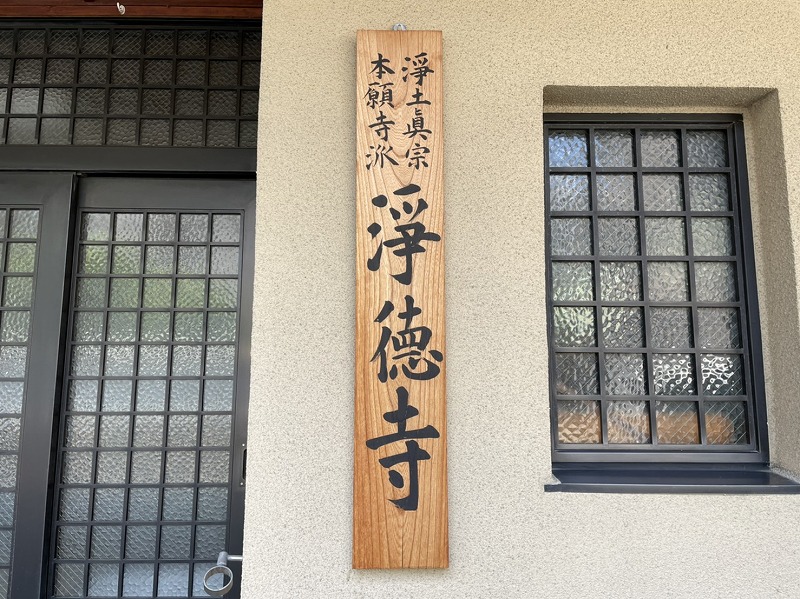 淨土眞宗
本願寺派
淨德寺